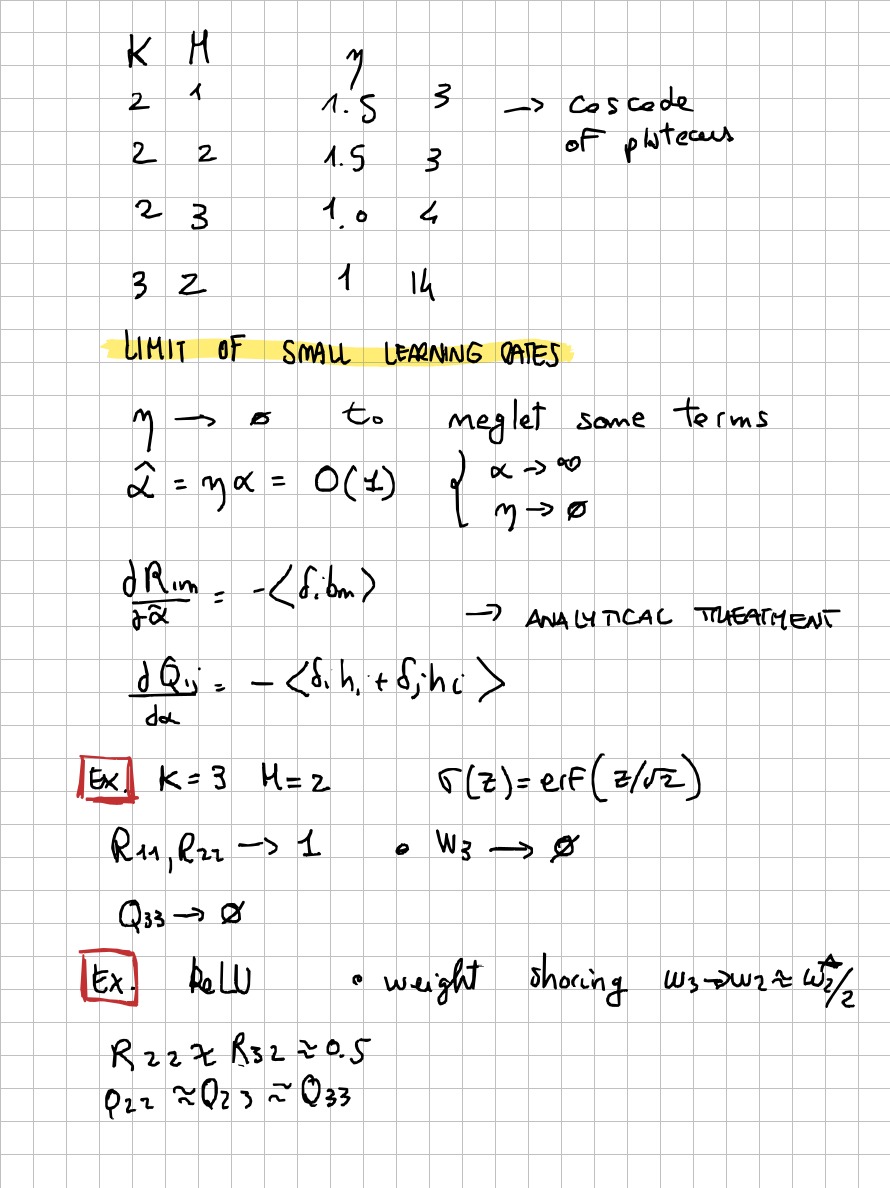 K M η
2 1 1.5 3 → cascade
of plateaus
2 2 1.5 3
2 3 1.0 4
3 2 1 14
LIMIT OF SMALL LEARNING RATES
η → ø to neglet some terms
α̂ = ηα = O(1) { α → ∞
η → ø
dRim/dα̃ = -<δibm>
→ ANALYTICAL TREATMENT
dQij/dα = - <δihi + δjhi>
Ex. K = 3 M = 2 σ(z) = erf(z/√2)
R11, R22 → 1 • W3 → ø
Q33 → ø
Ex. ReLU • weight sharing w3→w2 ≈ w2*/2
R22 ≈ R32 ≈ 0.5
Q22 ≈ Q23 ≈ Q33